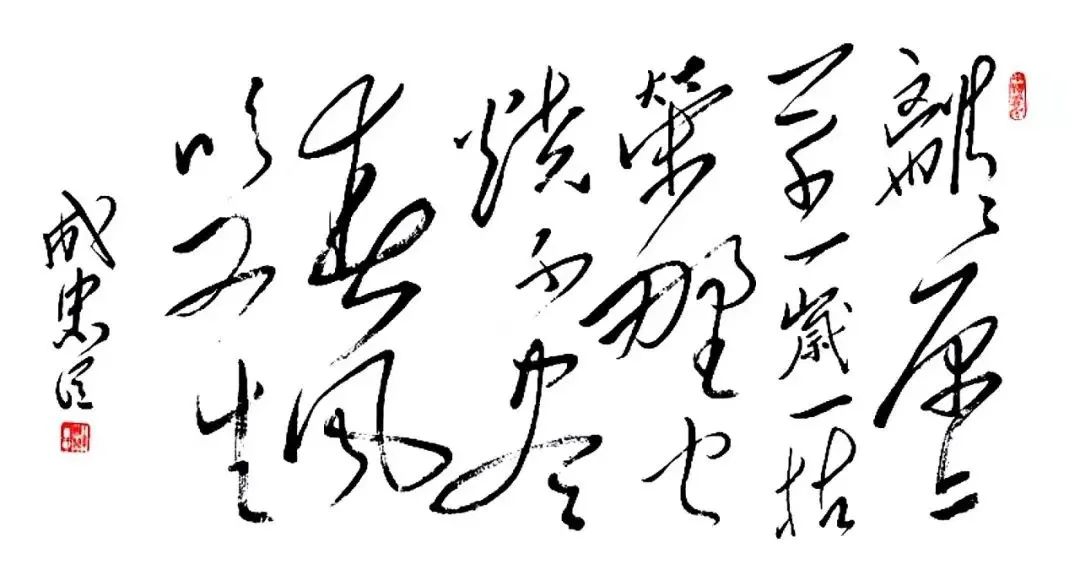 離々原上
草一歲一枯
榮野火
燒不盡
春風
吹又生
成忠